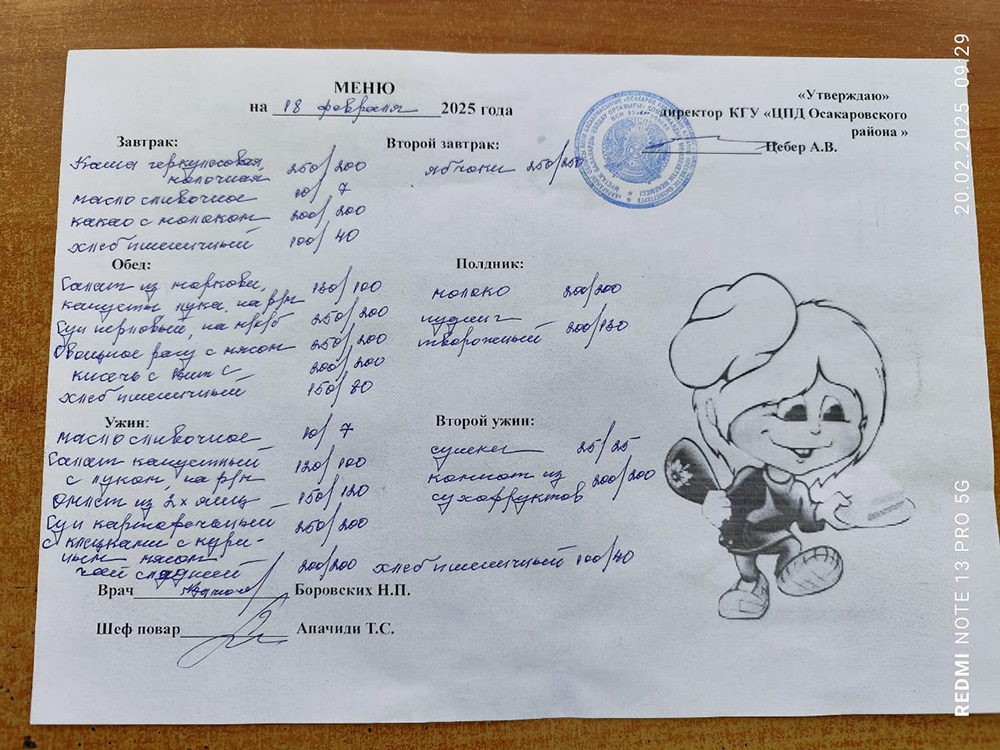 МЕНЮ
на 18 февраля 2025 года
«Утверждаю»
директор КГУ «ЦПД Осакаровского
района »
Цебер А.В.
Завтрак:
Каша геркулесовая 250/200
молочная
масло сливочное 10/7
какао с молоком 200/200
хлеб пшеничный 100/40
Второй завтрак:
яблоки 250/250
Обед:
Салат из моркови, 130/100
капусты лука, на р/м
Суп перловый, на м/к/б 250/200
Овощное рагу с мясом 250/200
кисель с вит С 200/200
хлеб пшеничный 150/80
Полдник:
молоко 200/200
пудинг
творожный 200/130
Ужин:
масло сливочное 10/7
Салат капустный 120/100
с луком, на р/м
Омлет из 2х яиц 150/120
Суп картофельный 250/200
с клецками с кури-
ным мясом
чай сладкий 200/200
Второй ужин:
сушки 25/25
компот из 200/200
сухофруктов
хлеб пшеничный 100/40
Врач Боровских Н.П.
Шеф повар Апачиди Т.С.
REDMI NOTE 13 PRO 5G 20.02.2025 09:29